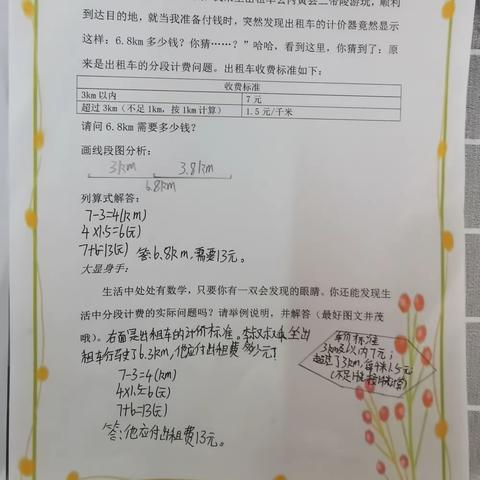 到达目的地，就当我准备付钱时，突然发现出租车的计价器竟然显示
这样：6.8km 多少钱？你猜……？”哈哈，看到这里，你猜到了：原
来是出租车的分段计费问题。出租车收费标准如下：
收费标准
3km 以内 7 元
超过 3km（不足 1km，按 1km 计算） 1.5 元/千米
请问 6.8km 需要多少钱？
画线段图分析：
3km 3.8km
6.8km
列算式解答：
7-3=4(km)
4×1.5=6(元)
7+6=13(元) 答:6.8km,需要13元。
大显身手：
生活中处处有数学，只要你有一双会发现的眼睛。你还能发现生
活中分段计费的实际问题吗？请举例说明，并解答（最好图文并茂
哦）。右面是出租车的计价标准。李叔叔乘坐出
租车行驶了6.3km,他应付出租费多少元?
价标准
3km及以内7元;
超过了3km,每千米1.5元
(不足1km,按1km计算)
7-3=4(km)
4×1.5=6(元)
7+6=13(元)
答:他应付出租费13元。